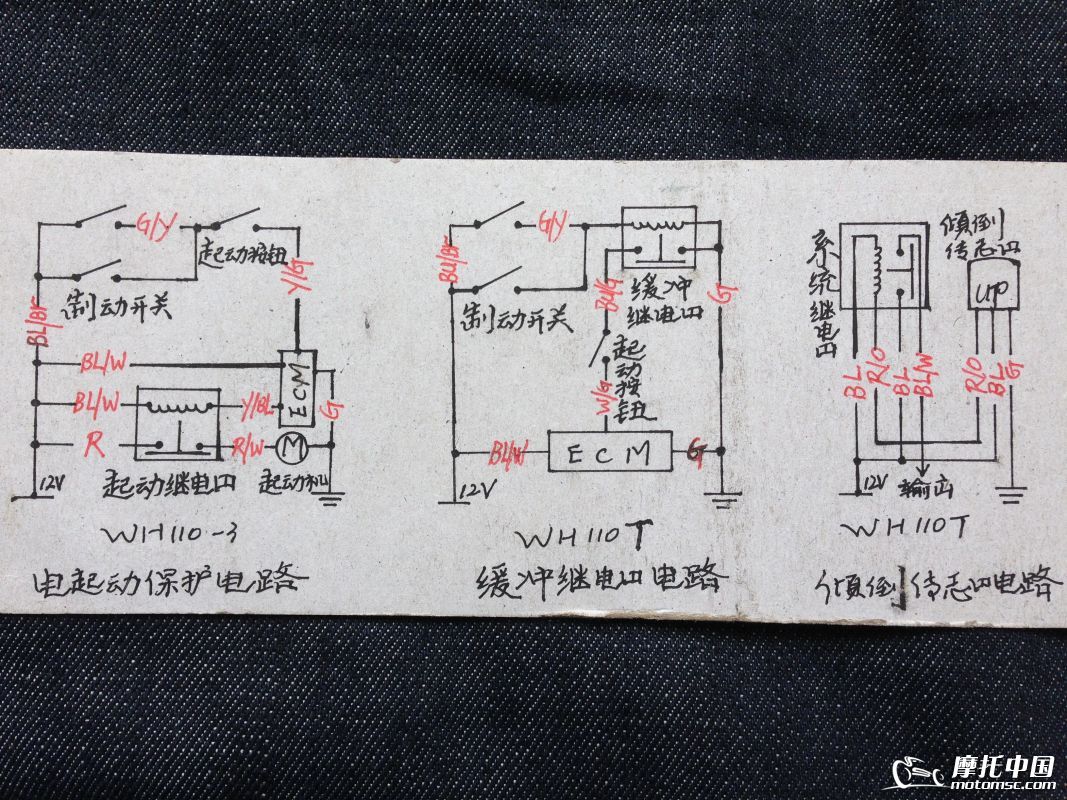 G/Y
起动按钮
制动开关
Y/G
BL/Br
BL/W
BL/W
Y/BL
ECM
G
R
R/W
M
12V
起动继电口
起动机
WH110-3
电起动保护电路
G/Y
BL/Br
制动开关
缓冲
继电口
BL/G
G
起动按钮
W/G
BL/W
ECM
G
12V
WH110T
缓冲继电口电路
系统继电口
倾倒
传志口
UP
BL
R/O
BL
BL/W
R/O
BL
G
12V
输出
WH110T
倾倒传志口电路
摩托中国
motomsc.com